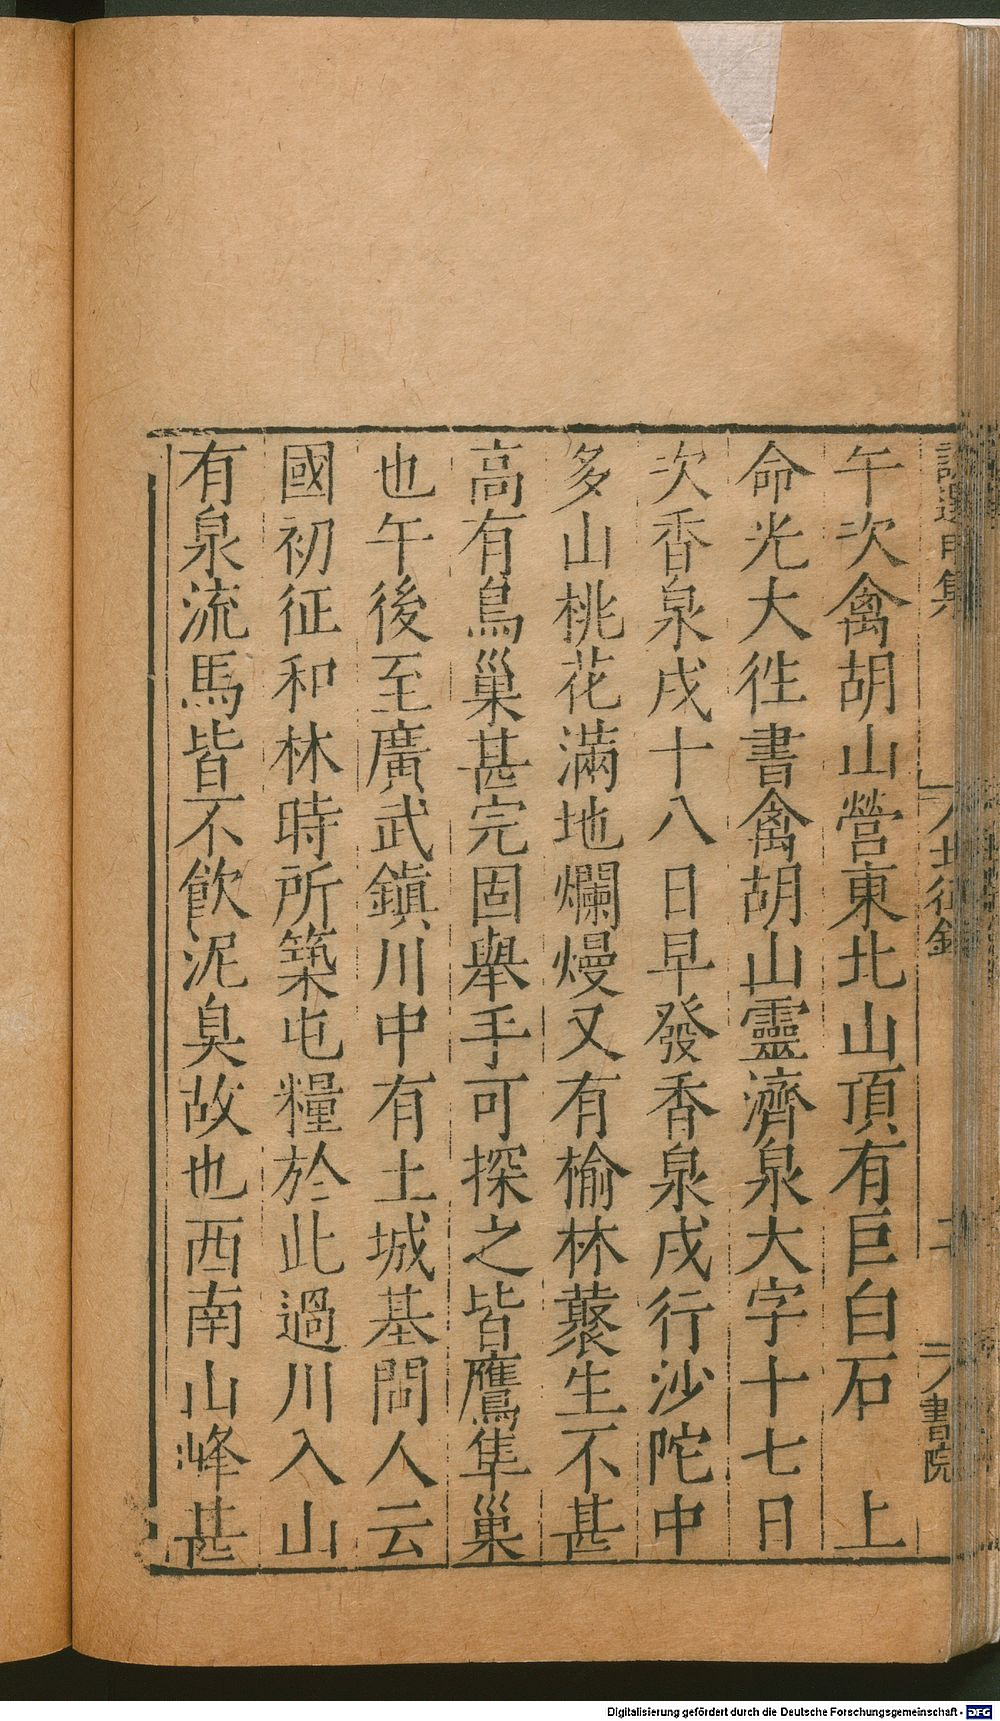 北征錄
書院
午次禽胡山營東北山頂有巨白石　上
命光大徃書禽胡山靈濟泉大字十七日
次香泉戍十八日早發香泉戍行沙陀中
多山桃花滿地爛熳又有榆林藂生不甚
高有鳥巢甚完固舉手可探之皆鷹隼巢
也午後至廣武鎮川中有土城基問人云
國初征和林時所築屯糧於此過川入山
有泉流馬皆不飲泥臭故也西南山峰甚
Digitalisierung gefördert durch die Deutsche Forschungsgemeinschaft - DFG